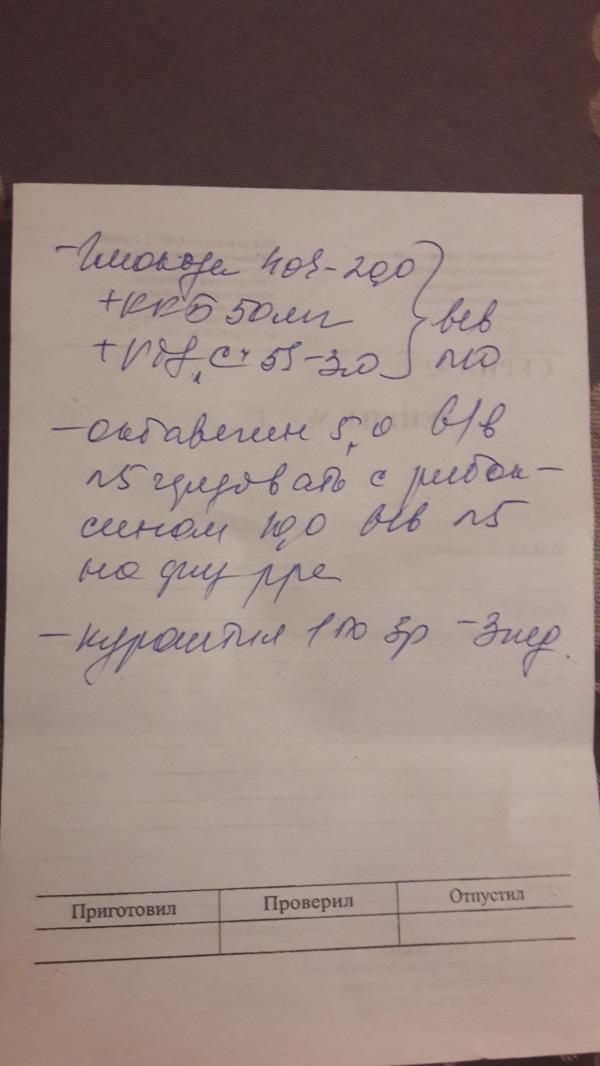 - Глюкоза 40% - 20,0
+ ККБ 50мг
+ Vit C 5% - 3,0
в/в
№10
- актовегин 5,0 в/в
№5 чередовать с рибок-
сином 10,0 в/в №5
на физ р-ре
- курантил 1 по 3р - 3 нед.
Приготовил
Проверил
Отпустил